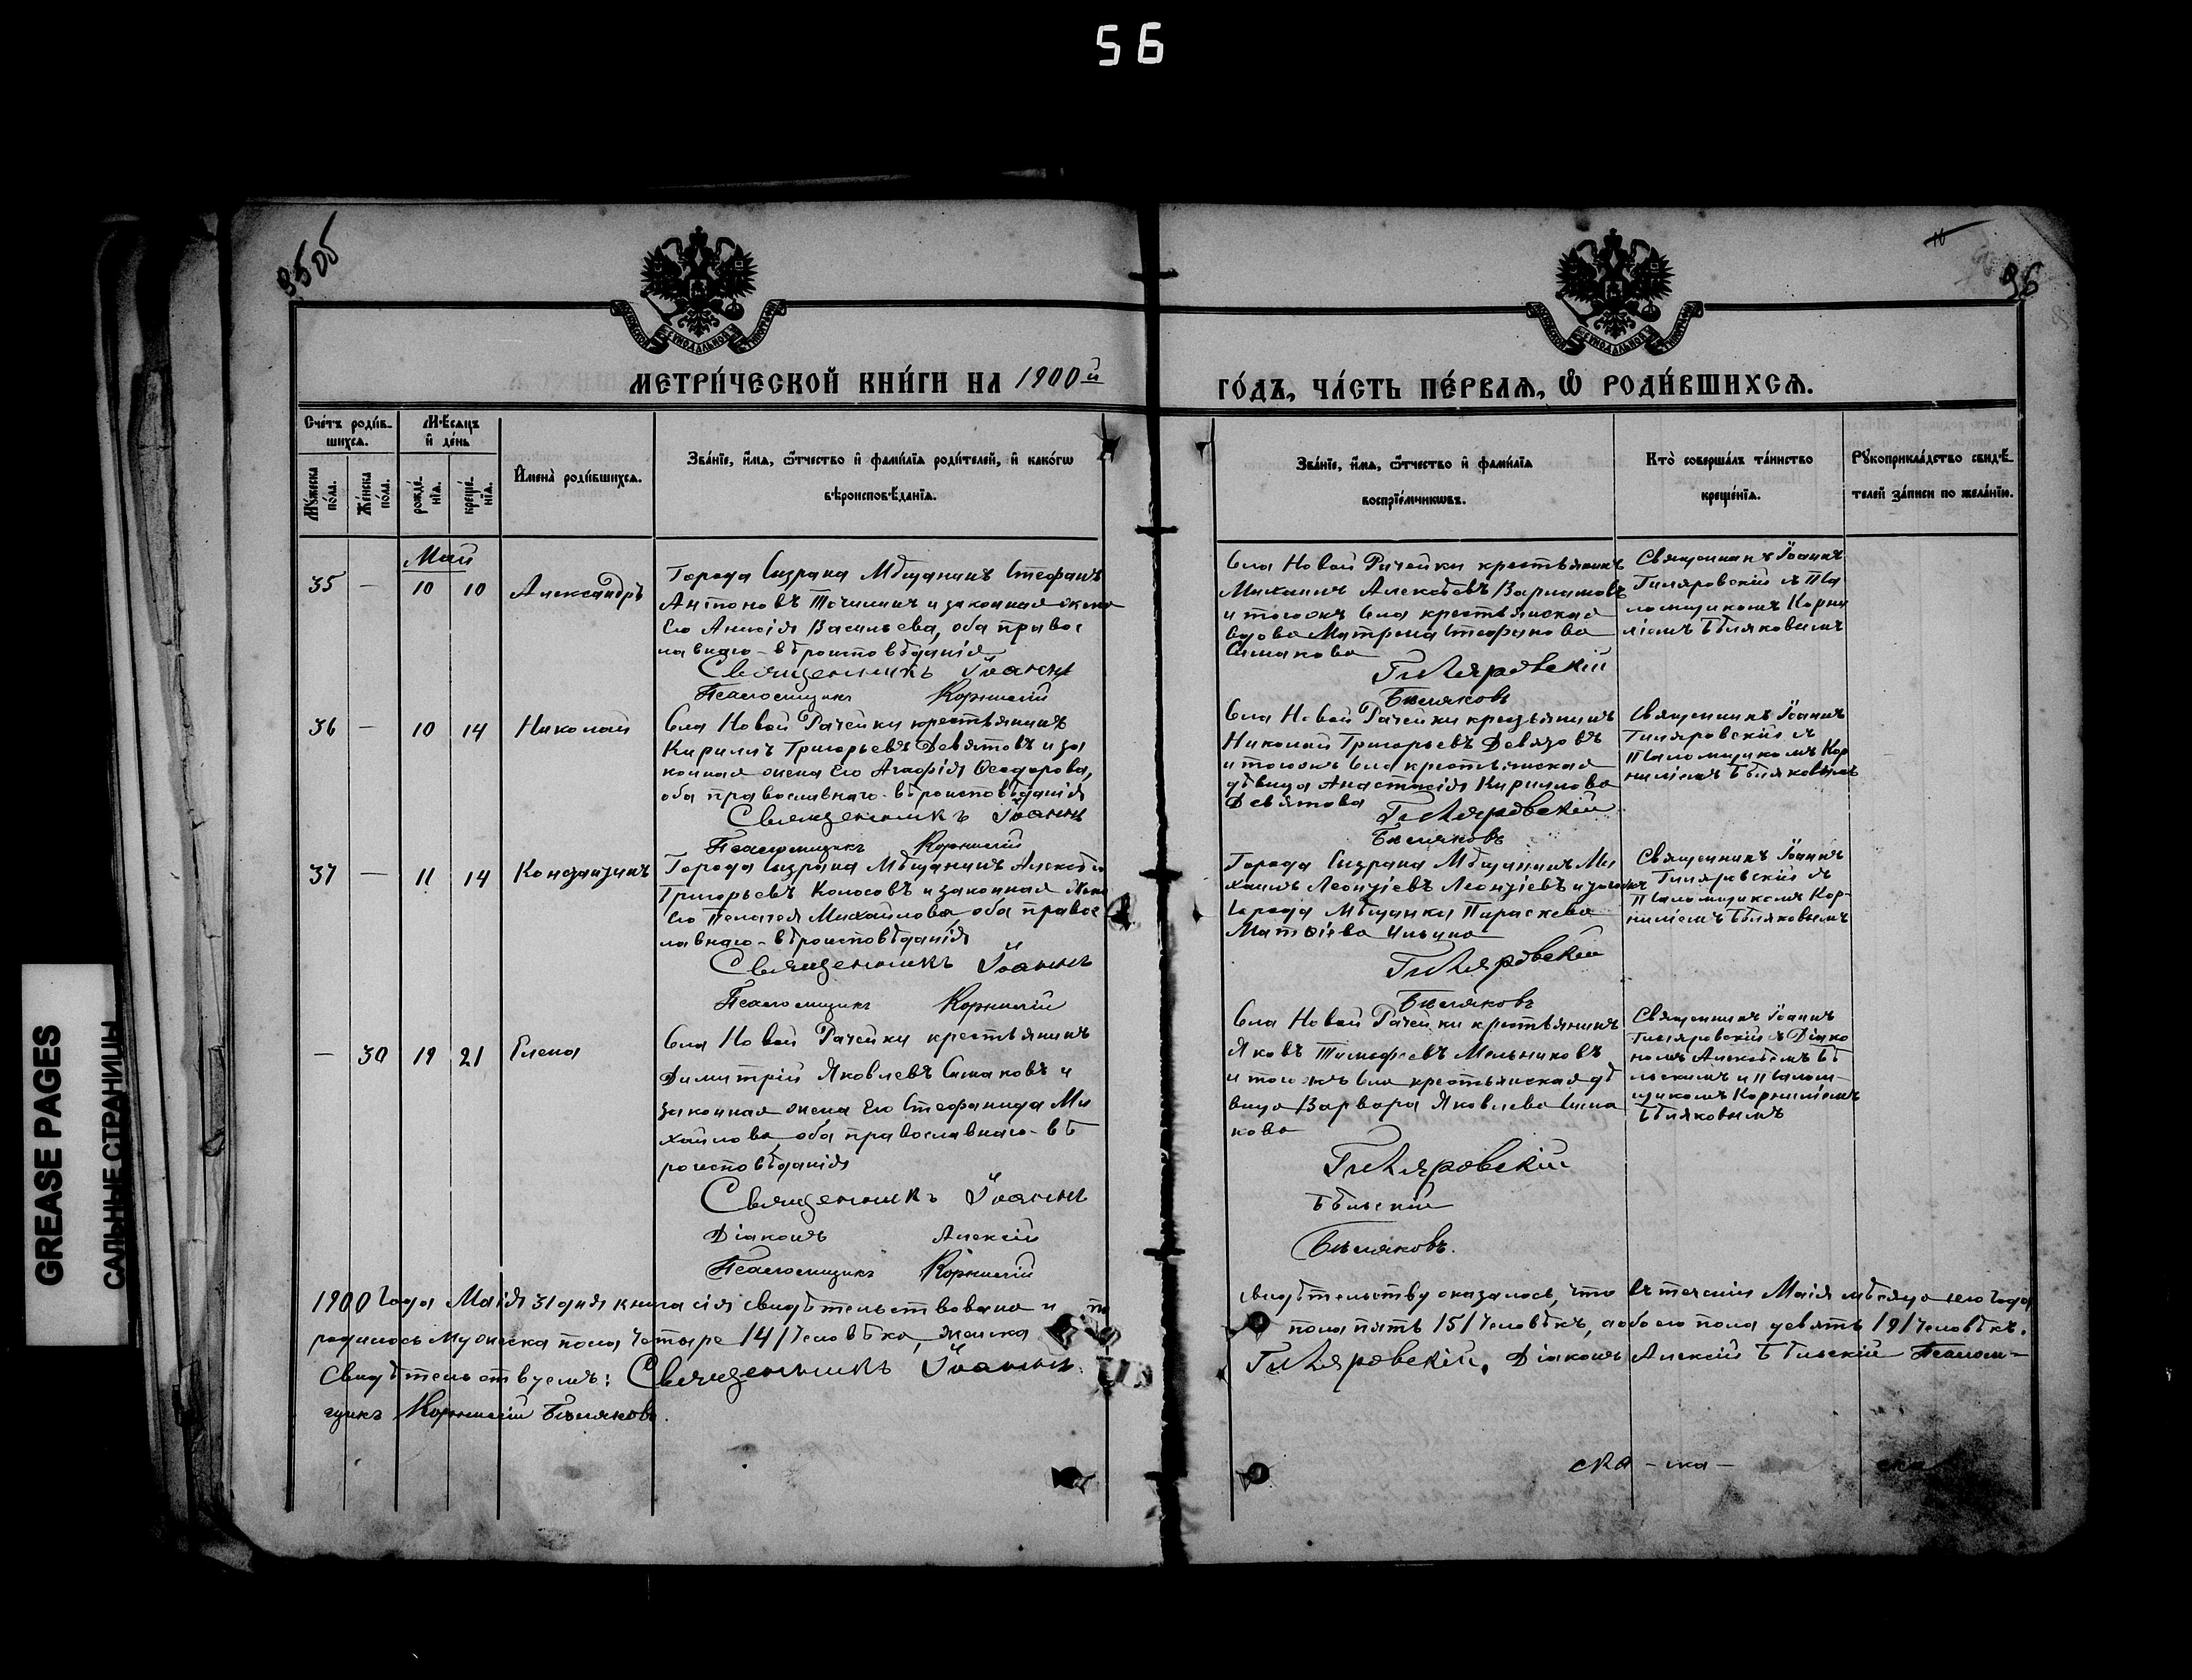 56
35об
96
МЕТРИ́ЧЕСКОЙ КНИ́ГИ НА 1900й
ГО́ДЪ, ЧА́СТЬ ПЕ́РВАѦ, Ѡ҆ РОДИ́ВШИХСѦ.
Сче́тъ роди́в-
шихсѧ.
Мѣ́сѧцъ
и҆ де́нь
Мꙋ́жеска по́ла.
Же́нска по́ла.
рожде́-
нїѧ.
креще́-
нїѧ.
И҆мена̀ роди́вшихсѧ.
Зва́нїе, и҆́мѧ, ѻ҆́тчество и҆ фами́лїѧ роди́телей, и҆ како́гѡ
вѣроисповѣ́данїѧ.
Зва́нїе, и҆́мѧ, ѻ҆́тчество и҆ фами́лїѧ
воспрїе́мникѡвъ.
Кто̀ соверша́лъ та́инство
креще́нїѧ.
Рꙋкоприкла́дство свидѣ́-
телей за́писи по жела́нїю.
Май
35 — 10 10 Александръ
Города Сызрана Мѣщанинъ Стефанъ
Антоновъ Точилинъ и законная жена
Его Анисія Васильева, оба правос
лавнаго вѣроисповѣданія
Священникъ Іоаннъ
Псаломщикъ Корнилій
Села Новой Рачейки крестьянинъ
Михаилъ Алексѣевъ Варламовъ
и тогожъ Села крестьянская
вдова Матрона Стефанова
Симакова
Гиляровскій
Бѣляковъ
Священникъ Іоаннъ
Гиляровскій съ Пса
ломщикомъ Корни
ліемъ Бѣляковымъ
36 — 10 14 Николай
Села Новой Рачейки крестьянинъ
Кириллъ Григорьевъ Девятовъ и за
конная жена Его Агафія Ѳеодорова,
оба православнаго вѣроисповѣданія
Священникъ Іоаннъ
Псаломщикъ Корнилій
Села Новой Рачейки крестьянинъ
Николай Григорьевъ Девятовъ
и тогожъ Села крестьянская
дѣвица Анастасія Кириллова
Девятова
Гиляровскій
Бѣляковъ
Священникъ Іоаннъ
Гиляровскій съ
Псаломщикомъ Кор
ниліемъ Бѣляковымъ
37 — 11 14 Константинъ
Города Сызрана Мѣщанинъ Алексѣй
Григорьевъ Колосовъ и законная жена
Его Пелагея Михайлова, оба правос
лавнаго вѣроисповѣданія
Священникъ Іоаннъ
Псаломщикъ Корнилій
Города Сызрана Мѣщанинъ Ми
хаилъ Леонтіевъ Леонтіевъ и тогожъ
Города Мѣщанка Параскева
Матѳіева Ильина
Гиляровскій
Бѣляковъ
Священникъ Іоаннъ
Гиляровскій съ
Псаломщикомъ Кор-
ниліемъ Бѣляковымъ
— 30 19 21 Елена
Села Новой Рачейки крестьянинъ
Димитрій Яковлевъ Симаковъ и
законная жена Его Стефанида Ми
хайлова, оба православнаго вѣ
роисповѣданія
Священникъ Іоаннъ
Діаконъ Алексій
Псаломщикъ Корнилій
Села Новой Рачейки крестьянинъ
Яковъ Тимофеевъ Мельниковъ
и тогожъ Села крестьянская дѣ
вица Варвара Яковлева Сима
кова
Гиляровскій
Бѣльскій
Бѣляковъ.
Священникъ Іоаннъ
Гиляровскій съ Діако
номъ Алексѣемъ Бѣ
льскимъ и Псалом-
щикомъ Корниліемъ
Бѣляковымъ
1900 Года Маія 31 дня книга сія свидѣтельствована и по свидѣтельству оказалось, что въ теченіи Маія мѣсяца сего Года
родилось мужеска пола четыре /4/ человѣка, женска пола пять /5/ человѣкъ, а обоего пола девять /9/ человѣкъ.
Свидѣтельствуемъ: Священникъ Іоаннъ Гиляровскій, Діаконъ Алексій Бѣльскій Псалом-
щикъ Корнилій Бѣляковъ.
GREASE PAGES
САЛЬНЫЕ СТРАНИЦЫ